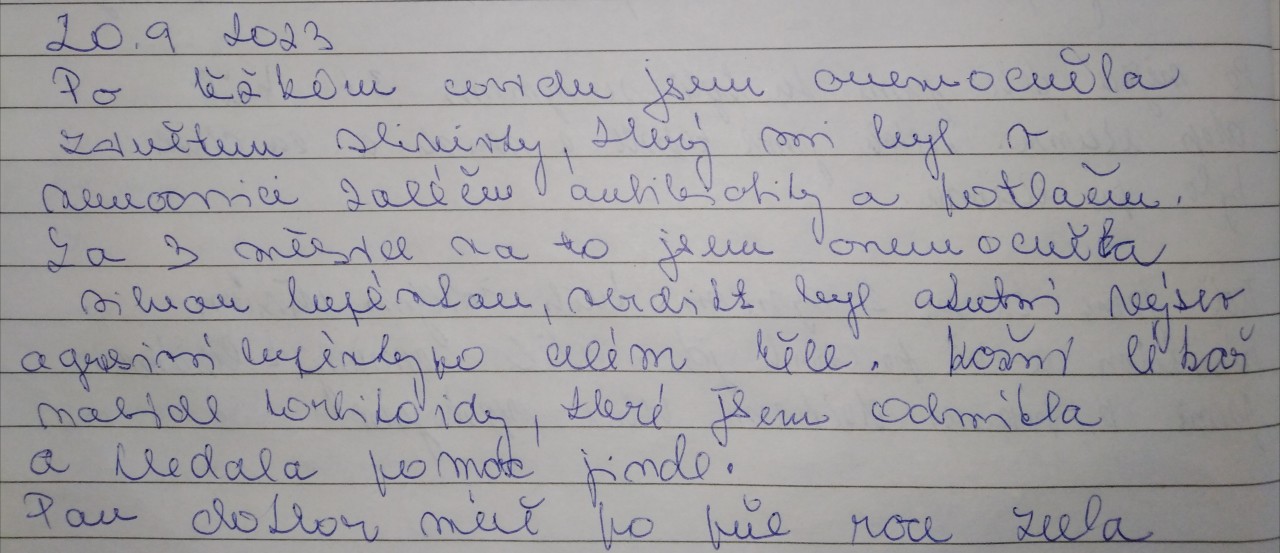 20.9 2023
Po těžkém covidu jsem onemocněla
zánětem slinivky, který mi byl v
nemocnici zaléčen antibiotiky a potlačen.
Za 3 měsíce na to jsem onemocněla
silnou lupénkou, verdikt byl akutní výsev
agresivní lupénky po celém těle. Kožní lékař
nabídl kortikoidy, které jsem odmítla
a hledala pomoc jinde.
Pan doktor mně po půl roce zcela